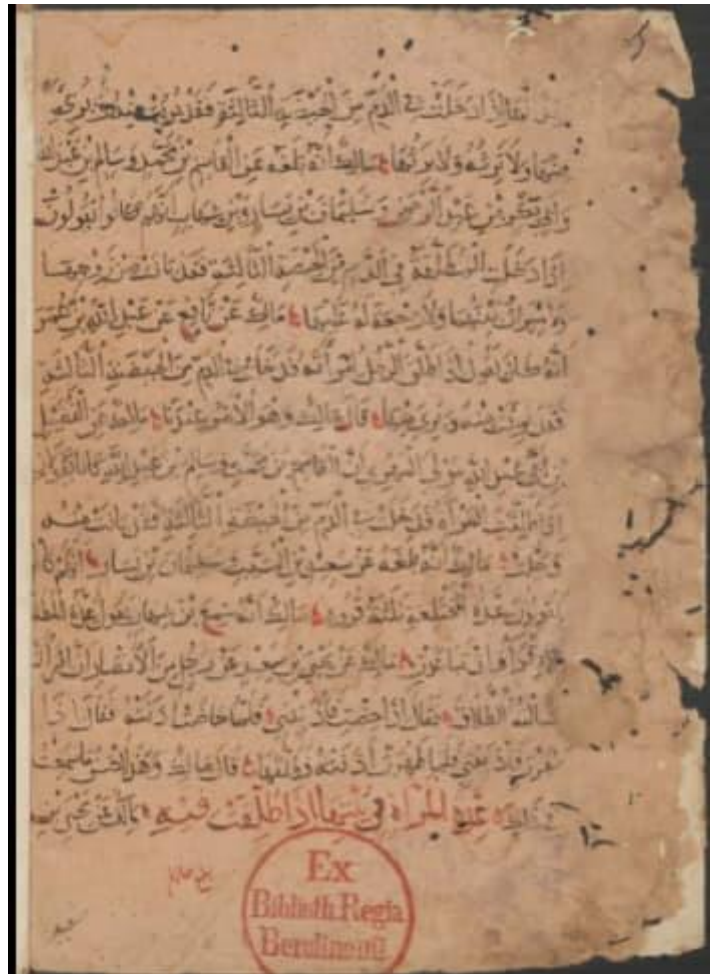 إذا دخلت في الدم من الحيضة الثالثة فقد برئت منه وبرئ
منها ولا ترثه ولا يرثها مالك انه بلغه عن القاسم بن محمد وسالم بن عبد الله
وابي بكر بن عبد الرحمن وسليمان بن يسار وبن شهاب انهم كانوا يقولون
اذا دخلت المطلقة في الدم من الحيضة الثالثة فقد بانت من زوجها
ولا ميراث بينهما ولا رجعة له عليها مالك عن نافع عن عبد الله بن عمر
انه كان يقول اذا طلق الرجل امرأته فدخلت في الدم من الحيضة الثالثة
فقد برئت منه وبرئ منها قال مالك وهو الأمر عندنا مالك عن الفضيل
بن أبي عبد الله مولى المهري ان القاسم بن محمد وسالم بن عبد الله كانا يقولان
اذا طلقت المرأة فدخلت في الدم من الحيضة الثالثة فقد بانت منه
وحلت مالك انه بلغه عن سعيد بن المسيب سليمان بن يسار انهم كانوا
يقولون عدة المختلعة ثلثة قروء مالك انه سمع بن شهاب يقول عدة المطلقة
الأقراء وان تباعدت مالك عن يحيى بن سعيد عن رجل من الأنصار ان امرأته
سألته الطلاق فقال اذا حضت فآذنيني فلما حاضت اذنته فقال اذا
طهرت فآذنيني فلما طهرت أذنته فطلقها قال مالك وهو احسن ما سمعت
في ذلك عدة المرأة في بيتها اذا طلقت فيه مالك عن يحيى بن
Ex
Biblioth. Regia
Berolinensi